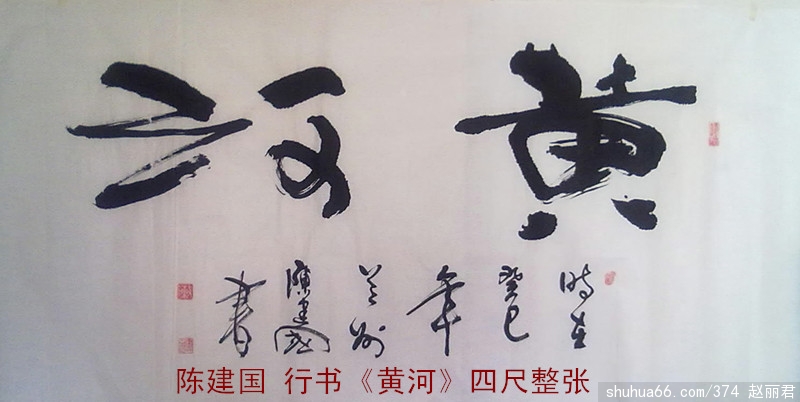 黄河
時在
癸巳
年
兰州
陳建國
書
陈建国 行书《黄河》四尺整张
shuhua66.com/374 赵丽君